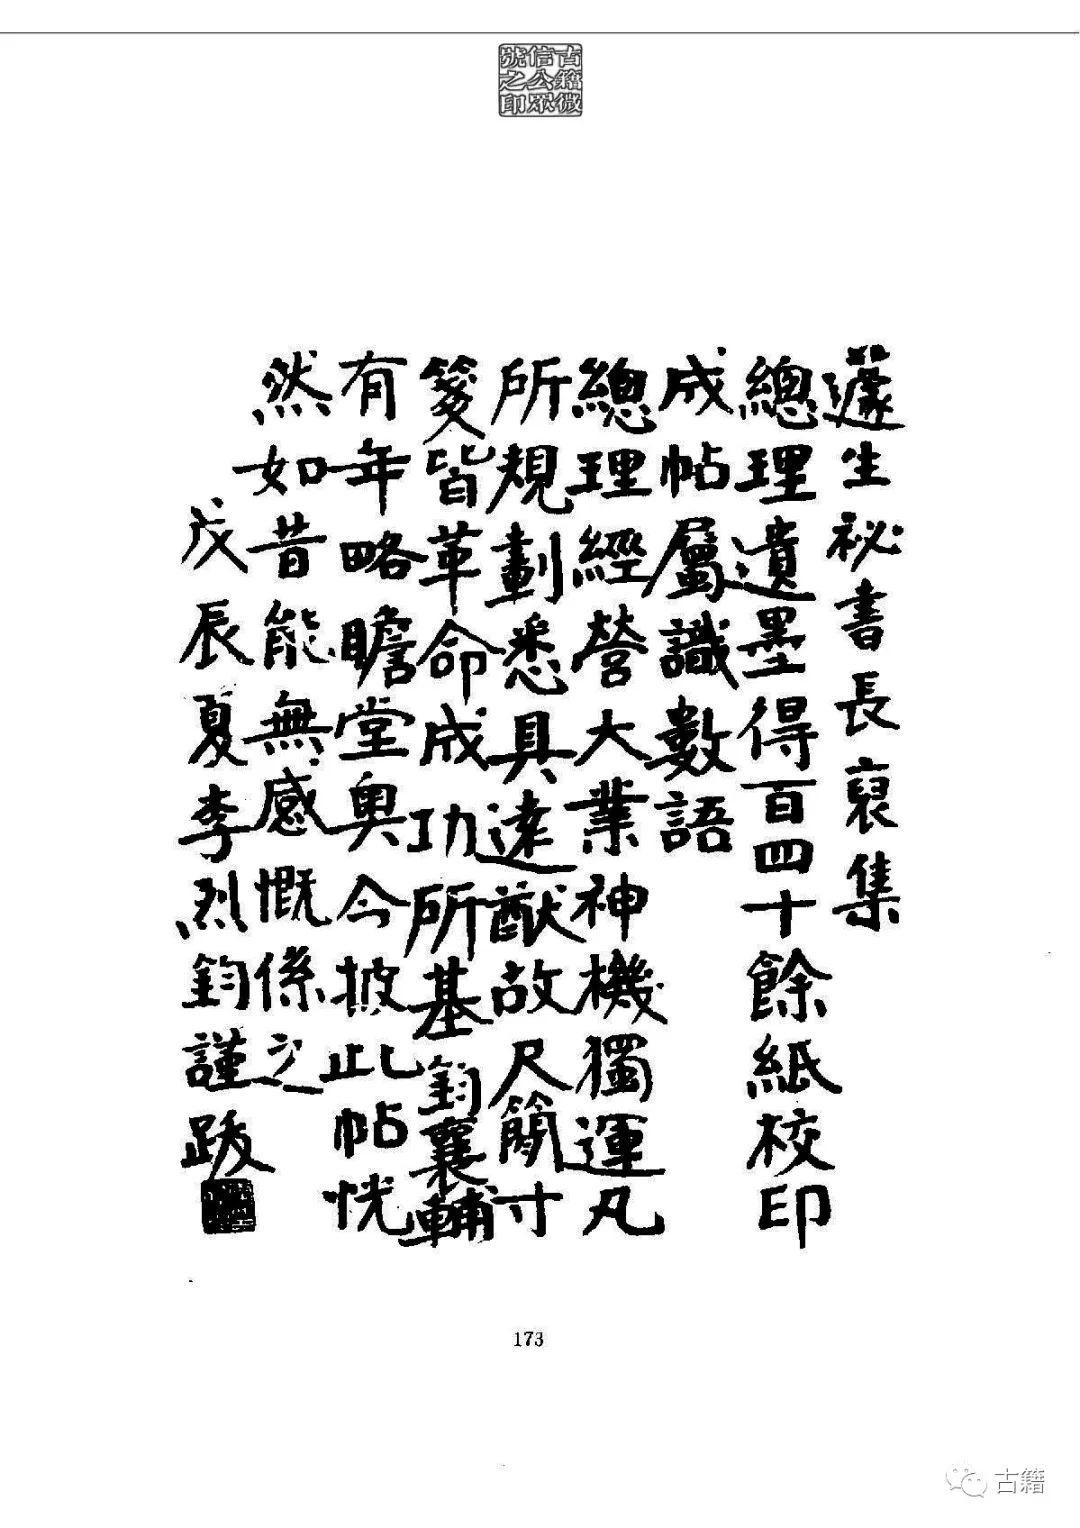 古籍微
信公眾
號之印
蘧生祕書長裒集
總理遺墨得百四十餘紙校印
成帖屬識數語
總理經營大業神機獨運凡
所規劃悉具遠猷故尺簡寸
箋皆革命成功所基鈞襄輔
有年略瞻堂奧今披此帖恍
然如昔能無感慨係之
戊辰夏李烈鈞謹跋
173
古籍